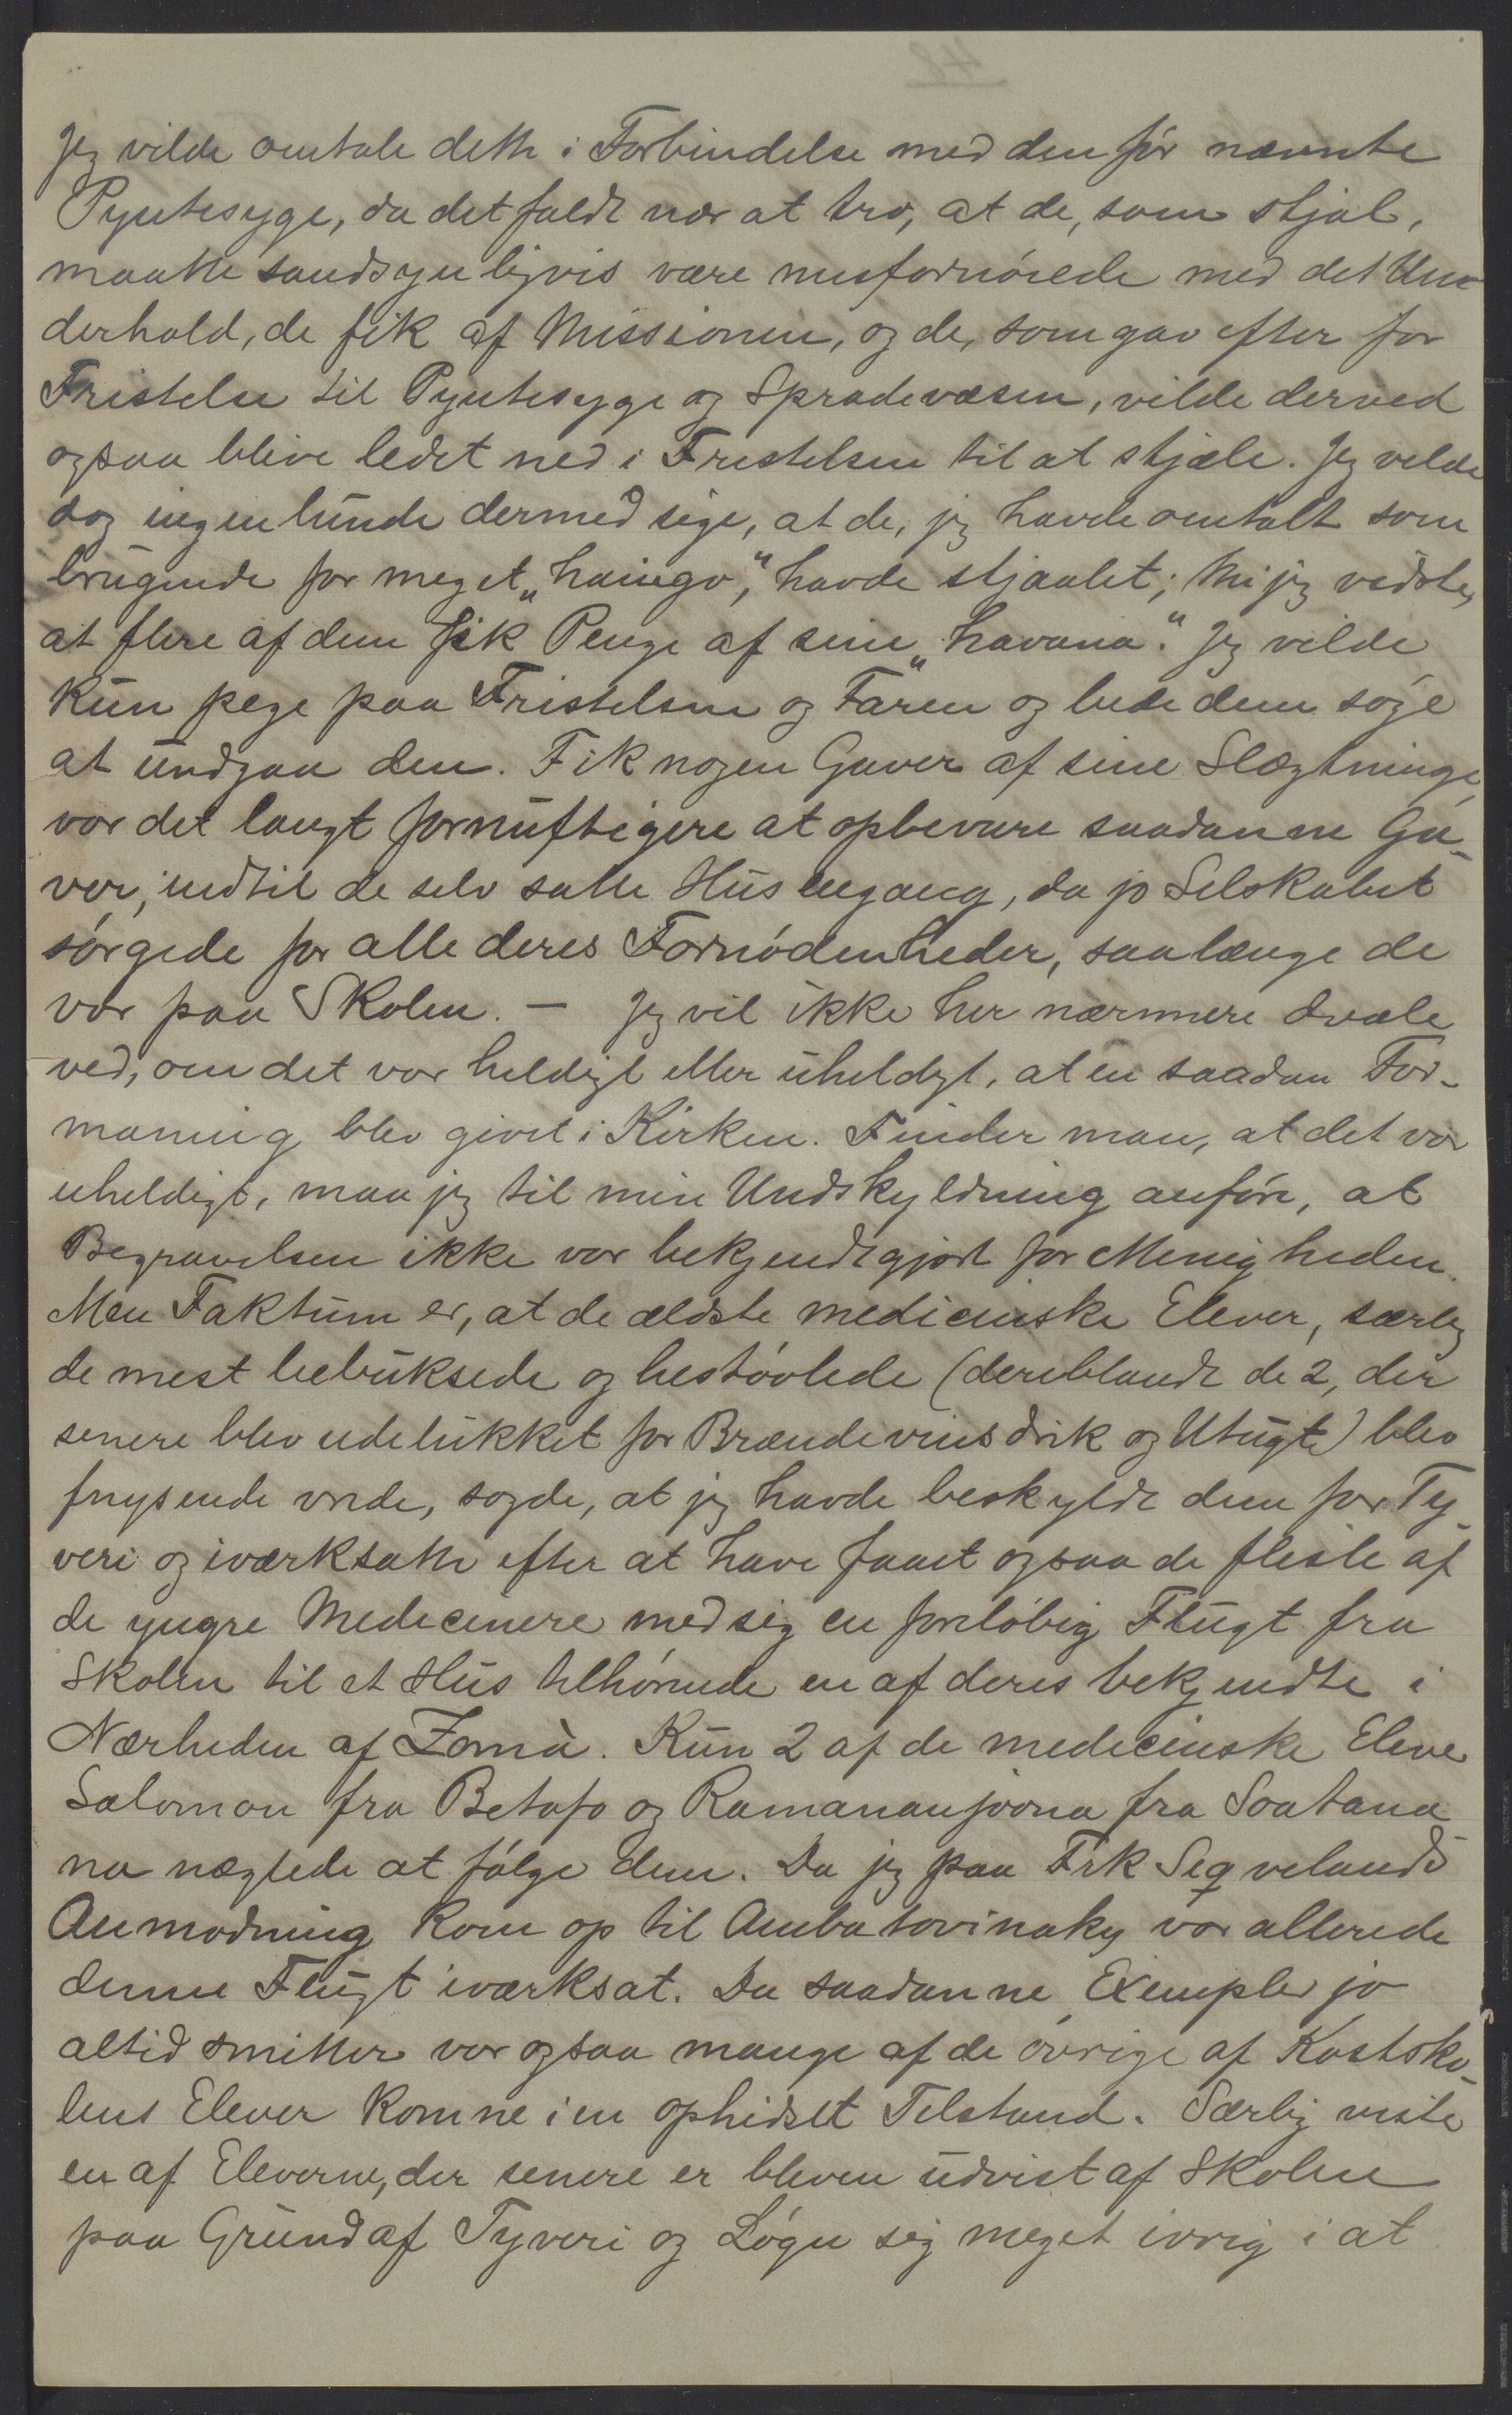 Jeg vilde omtale dette i Forbindelse med den før nævnte
Pyntesyge, da det faldt nær at tro, at de, som stjal,
maatte sandsynligvis være misfornøiede med det Un-
derhold, de fik af Missionen, og de, som gav efter for
Fristelse til Pyntesyge og Spradevæsen, vilde derved
ogsaa blive ledet ned i Fristelsen til at stjæle. Jeg vilde
dog ingenlunde dermed sige, at de, jeg havde omtalt som
brugende for meget „haingo“, havde stjaalet; thi jeg vidste,
at flere af dem fik Penge af sine „havana“. Jeg vilde
kun pege paa Fristelsen og Faren og bede dem søge
at undgaa den. Fik nogen Gaver af sine Slægtninge,
var det langt fornuftigere at opbevare saadanne Ga-
ver, indtil de selv satte Hus engang, da jo Selskabet
sørgede for alle deres Fornødenheder, saalænge de
var paa Skolen. — Jeg vil ikke her nærmere dvæle
ved, om det var heldigt eller uheldigt, at en saadan For-
maning blev givet i Kirken. Finder man, at det var
uheldigt, maa jeg til min Undskyldning anføre, at
Begravelsen ikke var bekjendtgjort for Menigheden.
Men Faktum er, at de ældste medicinske Elever, særlig
de mest bebuksede og bestøvlede (dereblandt de 2, der
senere blev udelukket for Brændevinsdrik og Utugt) blev
fnysende vrede, sagde, at jeg havde beskyldt dem for Ty-
veri og iværksatte efter at have faaet ogsaa de fleste af
de yngre Medicinere med sig en foreløbig Flugt fra
Skolen til et Hus tilhørende en af deres bekjendte i
Nærheden af Zomà. Kun 2 af de medicinske Elever
Salomon fra Betafo og Ramananjoona fra Soatana
na nægtede at følge dem. Da jeg paa Frk Seqvelands
Anmodning kom op til Ambatovinaky var allerede
denne Flugt iværksat. Da saadanne Exempler jo
altid smitter var ogsaa mange af de øvrige af Kostsko-
lens Elever komne i en ophidset Tilstand. Særlig viste
en af Eleverne, der senere er bleven udvist af Skolen
paa Grund af Tyveri og Løgn sig meget ivrig i at